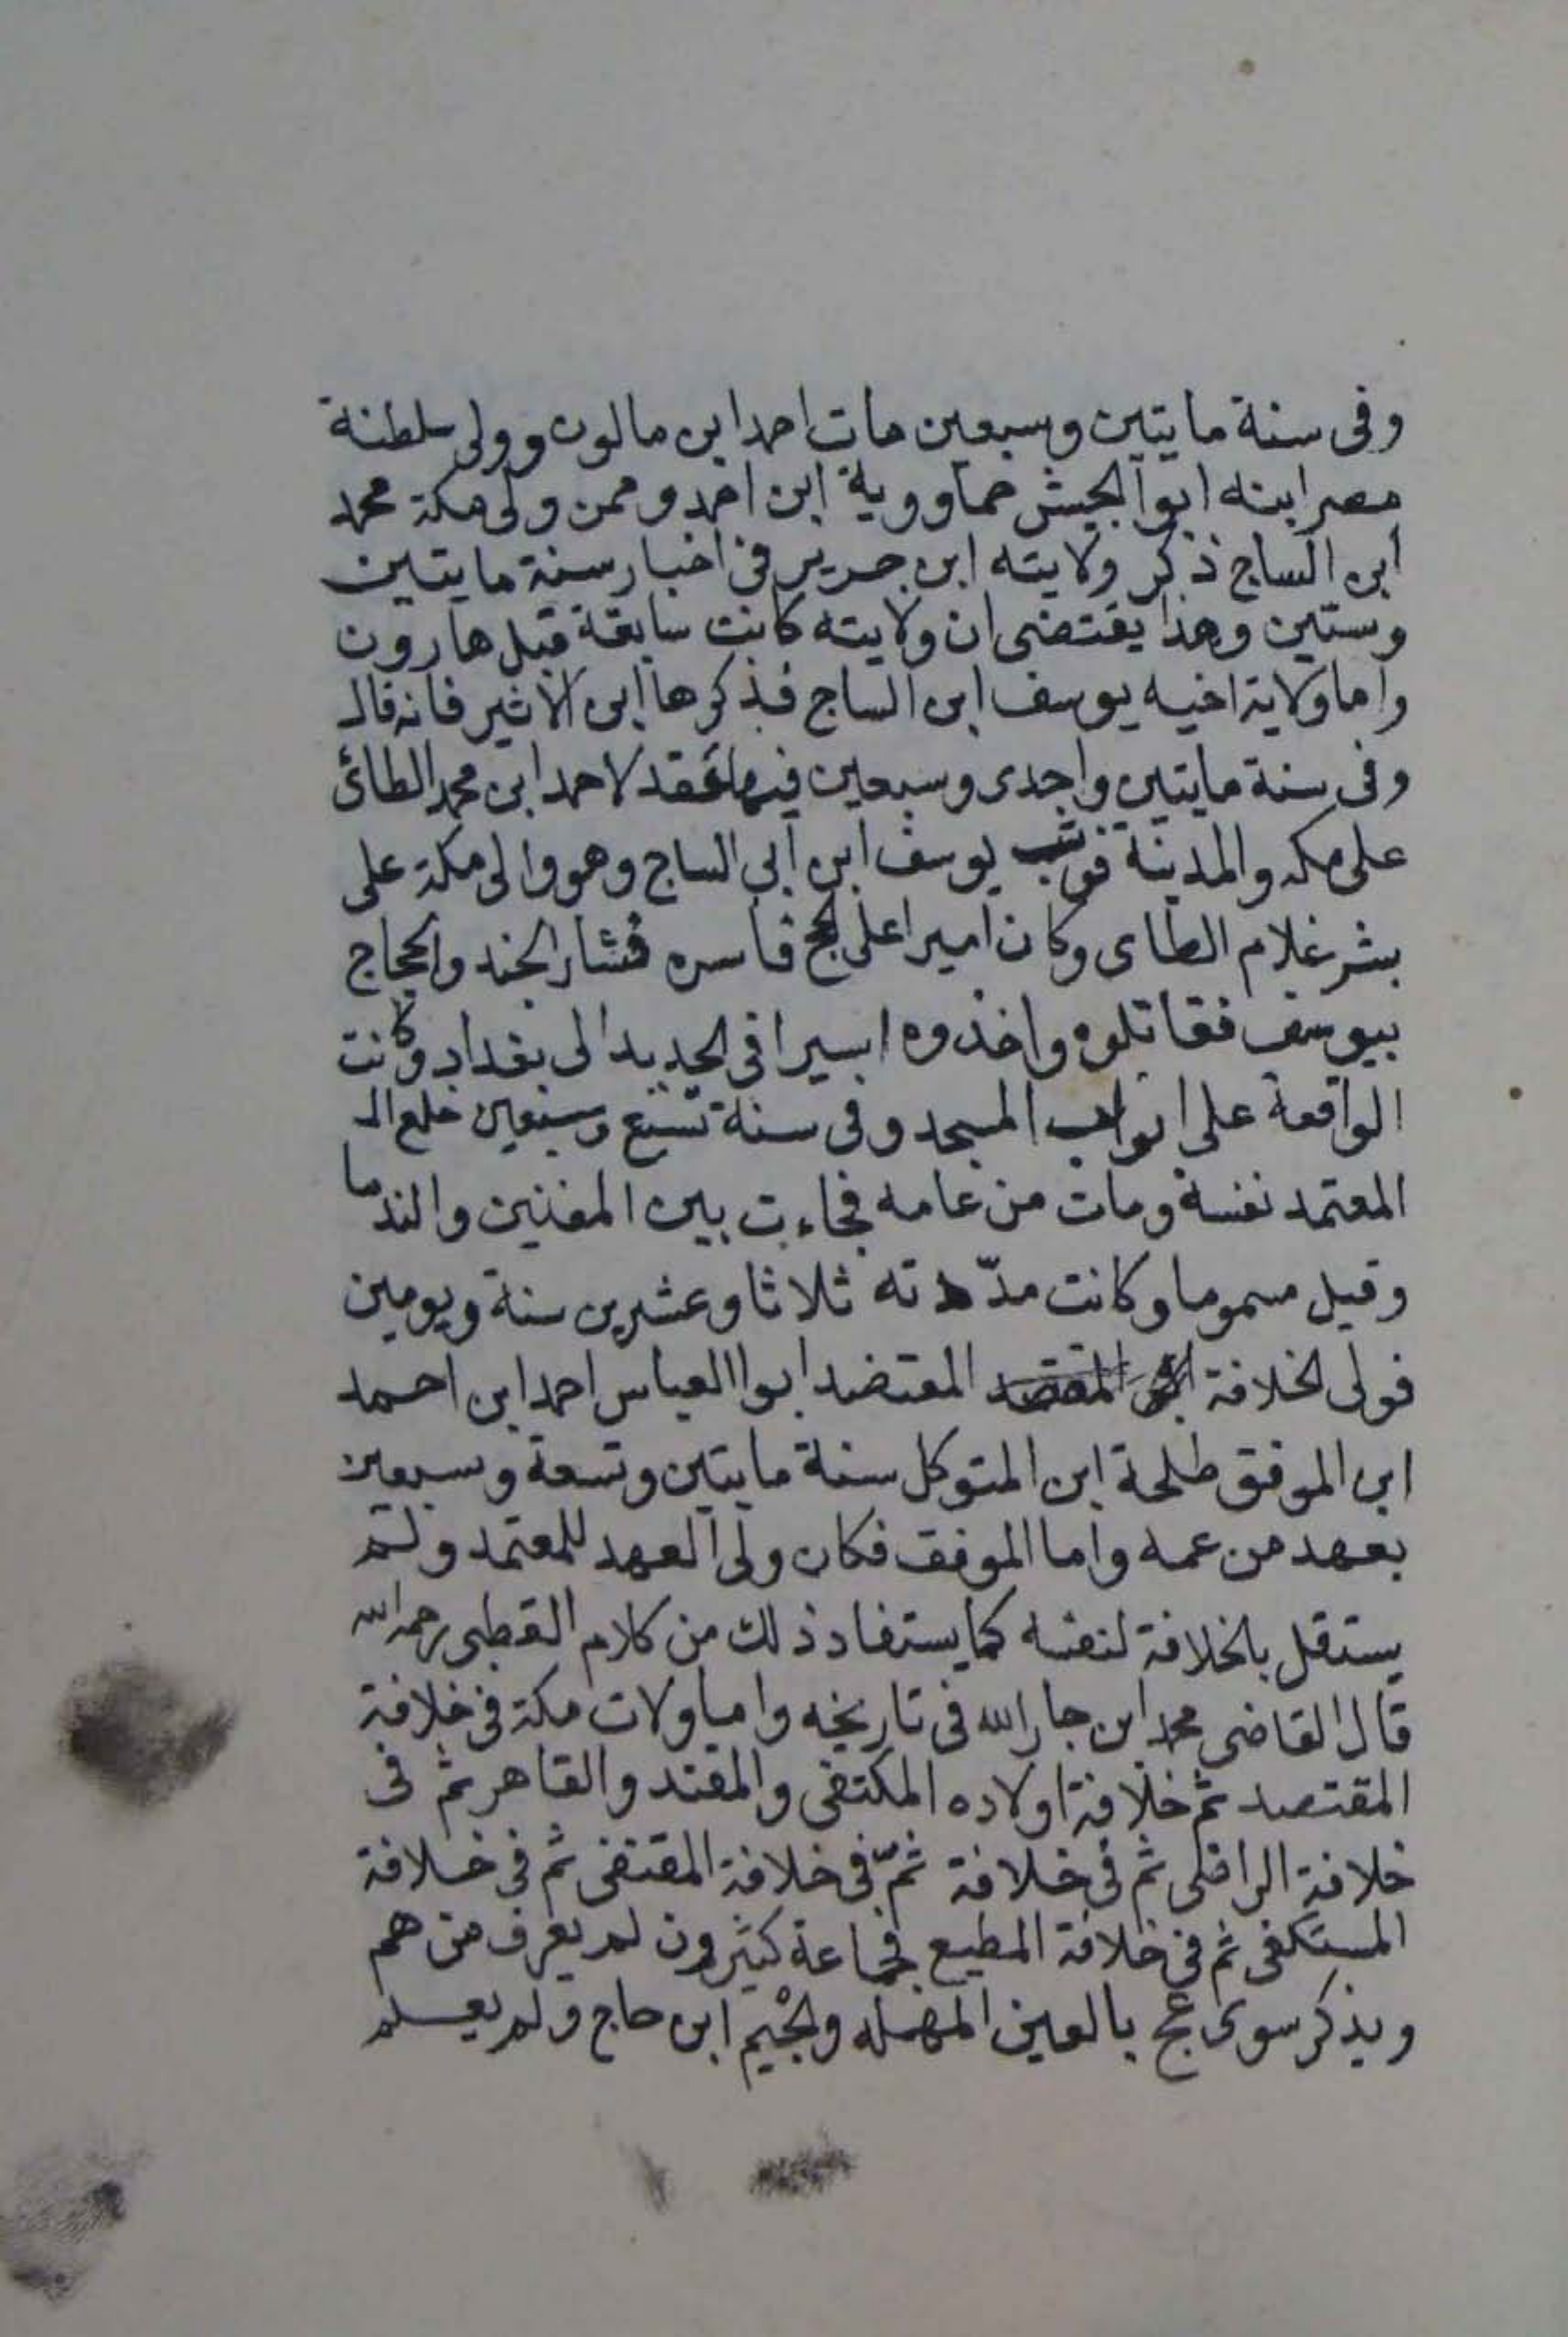 وفى سنة مايتين وسبعين مات احمد ابن مالون وولى سلطنة
مصر ابنه ابوا الجيش خماووية ابن احمد وممن ولى مكة محمد
ابن الساج ذكر ولايته ابن جرير فى اخبار سنة مايتين
وستين وهذا يقتضى ان ولايته كانت سابقة قبل هارون
واما ولاية اخيه يوسف ابن الساج فذكرها ابن الاثير فانه قال
وفى سنة مايتين واحدى وسبعين فيها عقد لاحمد ابن محمد الطائى
على مكه والمدينة فوثب يوسف ابن ابى الساج وهو والى مكة على
بشر غلام الطاى وكان اميرا على الحج فاسره فثار الجند والحجاج
بيوسف فقاتلوه واخذوه اسيرا فى الحديد الى بغداد وكانت
الواقعة على ابواب المسجد وفى سنة تسع وسبعين خلع الـ
المعتمد نفسة ومات من عامه فجاءت بين المغنين والندما
وقيل مسموما وكانت مدّته ثلاثا وعشرين سنة ويومين
فولى الخلافة المعتضد ابوا العباس احمد ابن احمد
ابن الموفق طلحة ابن المتوكل سنة مايتين وتسعة وسبعين
بعهد من عمه واما الموفق فكان ولى العهد للمعتمد ولم
يستقل بالخلافة لنفسه كما يستفاد ذلك من كلام القطبى رحمه الله
قال القاضى محمد ابن جار الله فى تاريخه واما ولات مكة فى خلافة
المقتصد ثم خلافة اولاده المكتفى والمقتد والقاهر ثم فى
خلافة الراضى ثم فى خلافة ثمّ فى خلافة المقتفى ثم فى خلافة
المستكفى ثم فى خلافة المطيع فجماعة كثيرون لم يعرف من هم
ويذكر سوى عج بالعين المهمله والجيم ابن حاج ولم يعلم